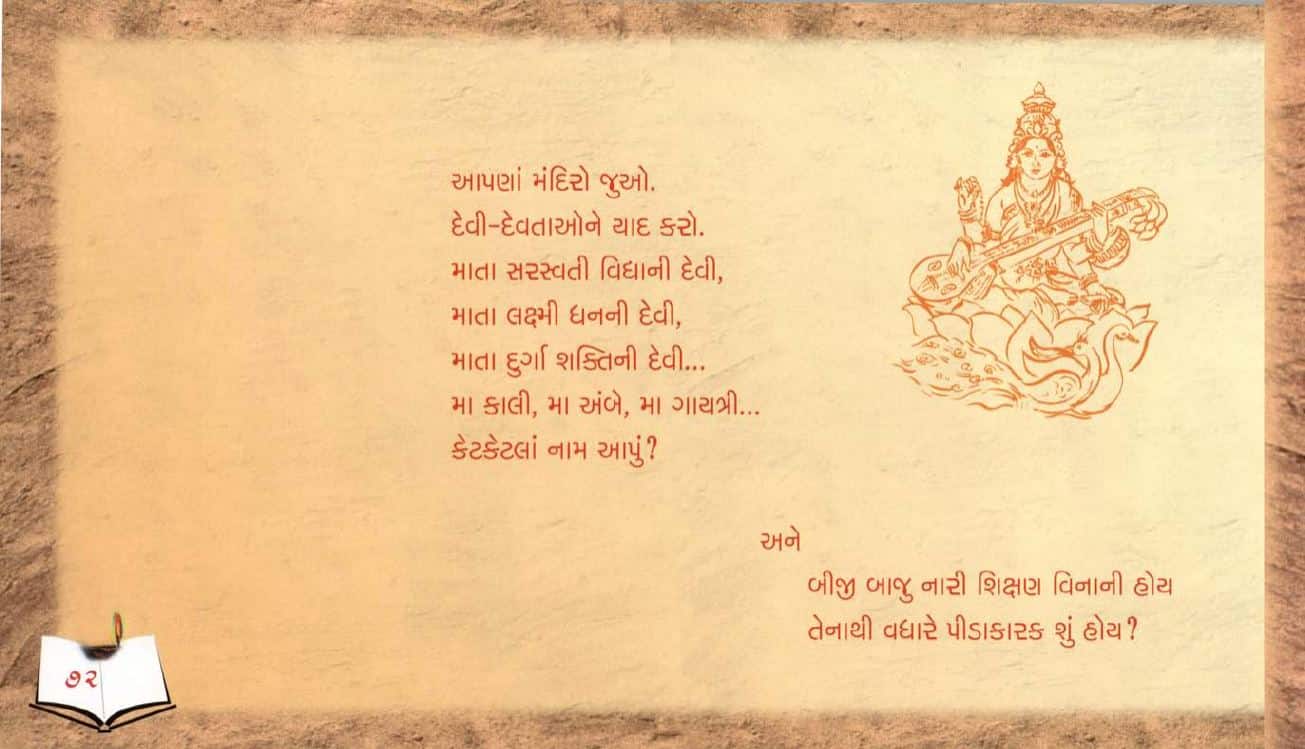 આપણાં મંદિરો જુઓ.
દેવી-દેવતાઓને યાદ કરો.
માતા સરસ્વતી વિદ્યાની દેવી,
માતા લક્ષ્મી ધનની દેવી,
માતા દુર્ગા શક્તિની દેવી...
મા કાલી, મા અંબે, મા ગાયત્રી...
કેટકેટલાં નામ આપું?
અને
બીજી બાજુ નારી શિક્ષણ વિનાની હોય
તેનાથી વધારે પીડાકારક શું હોય?
૭૨